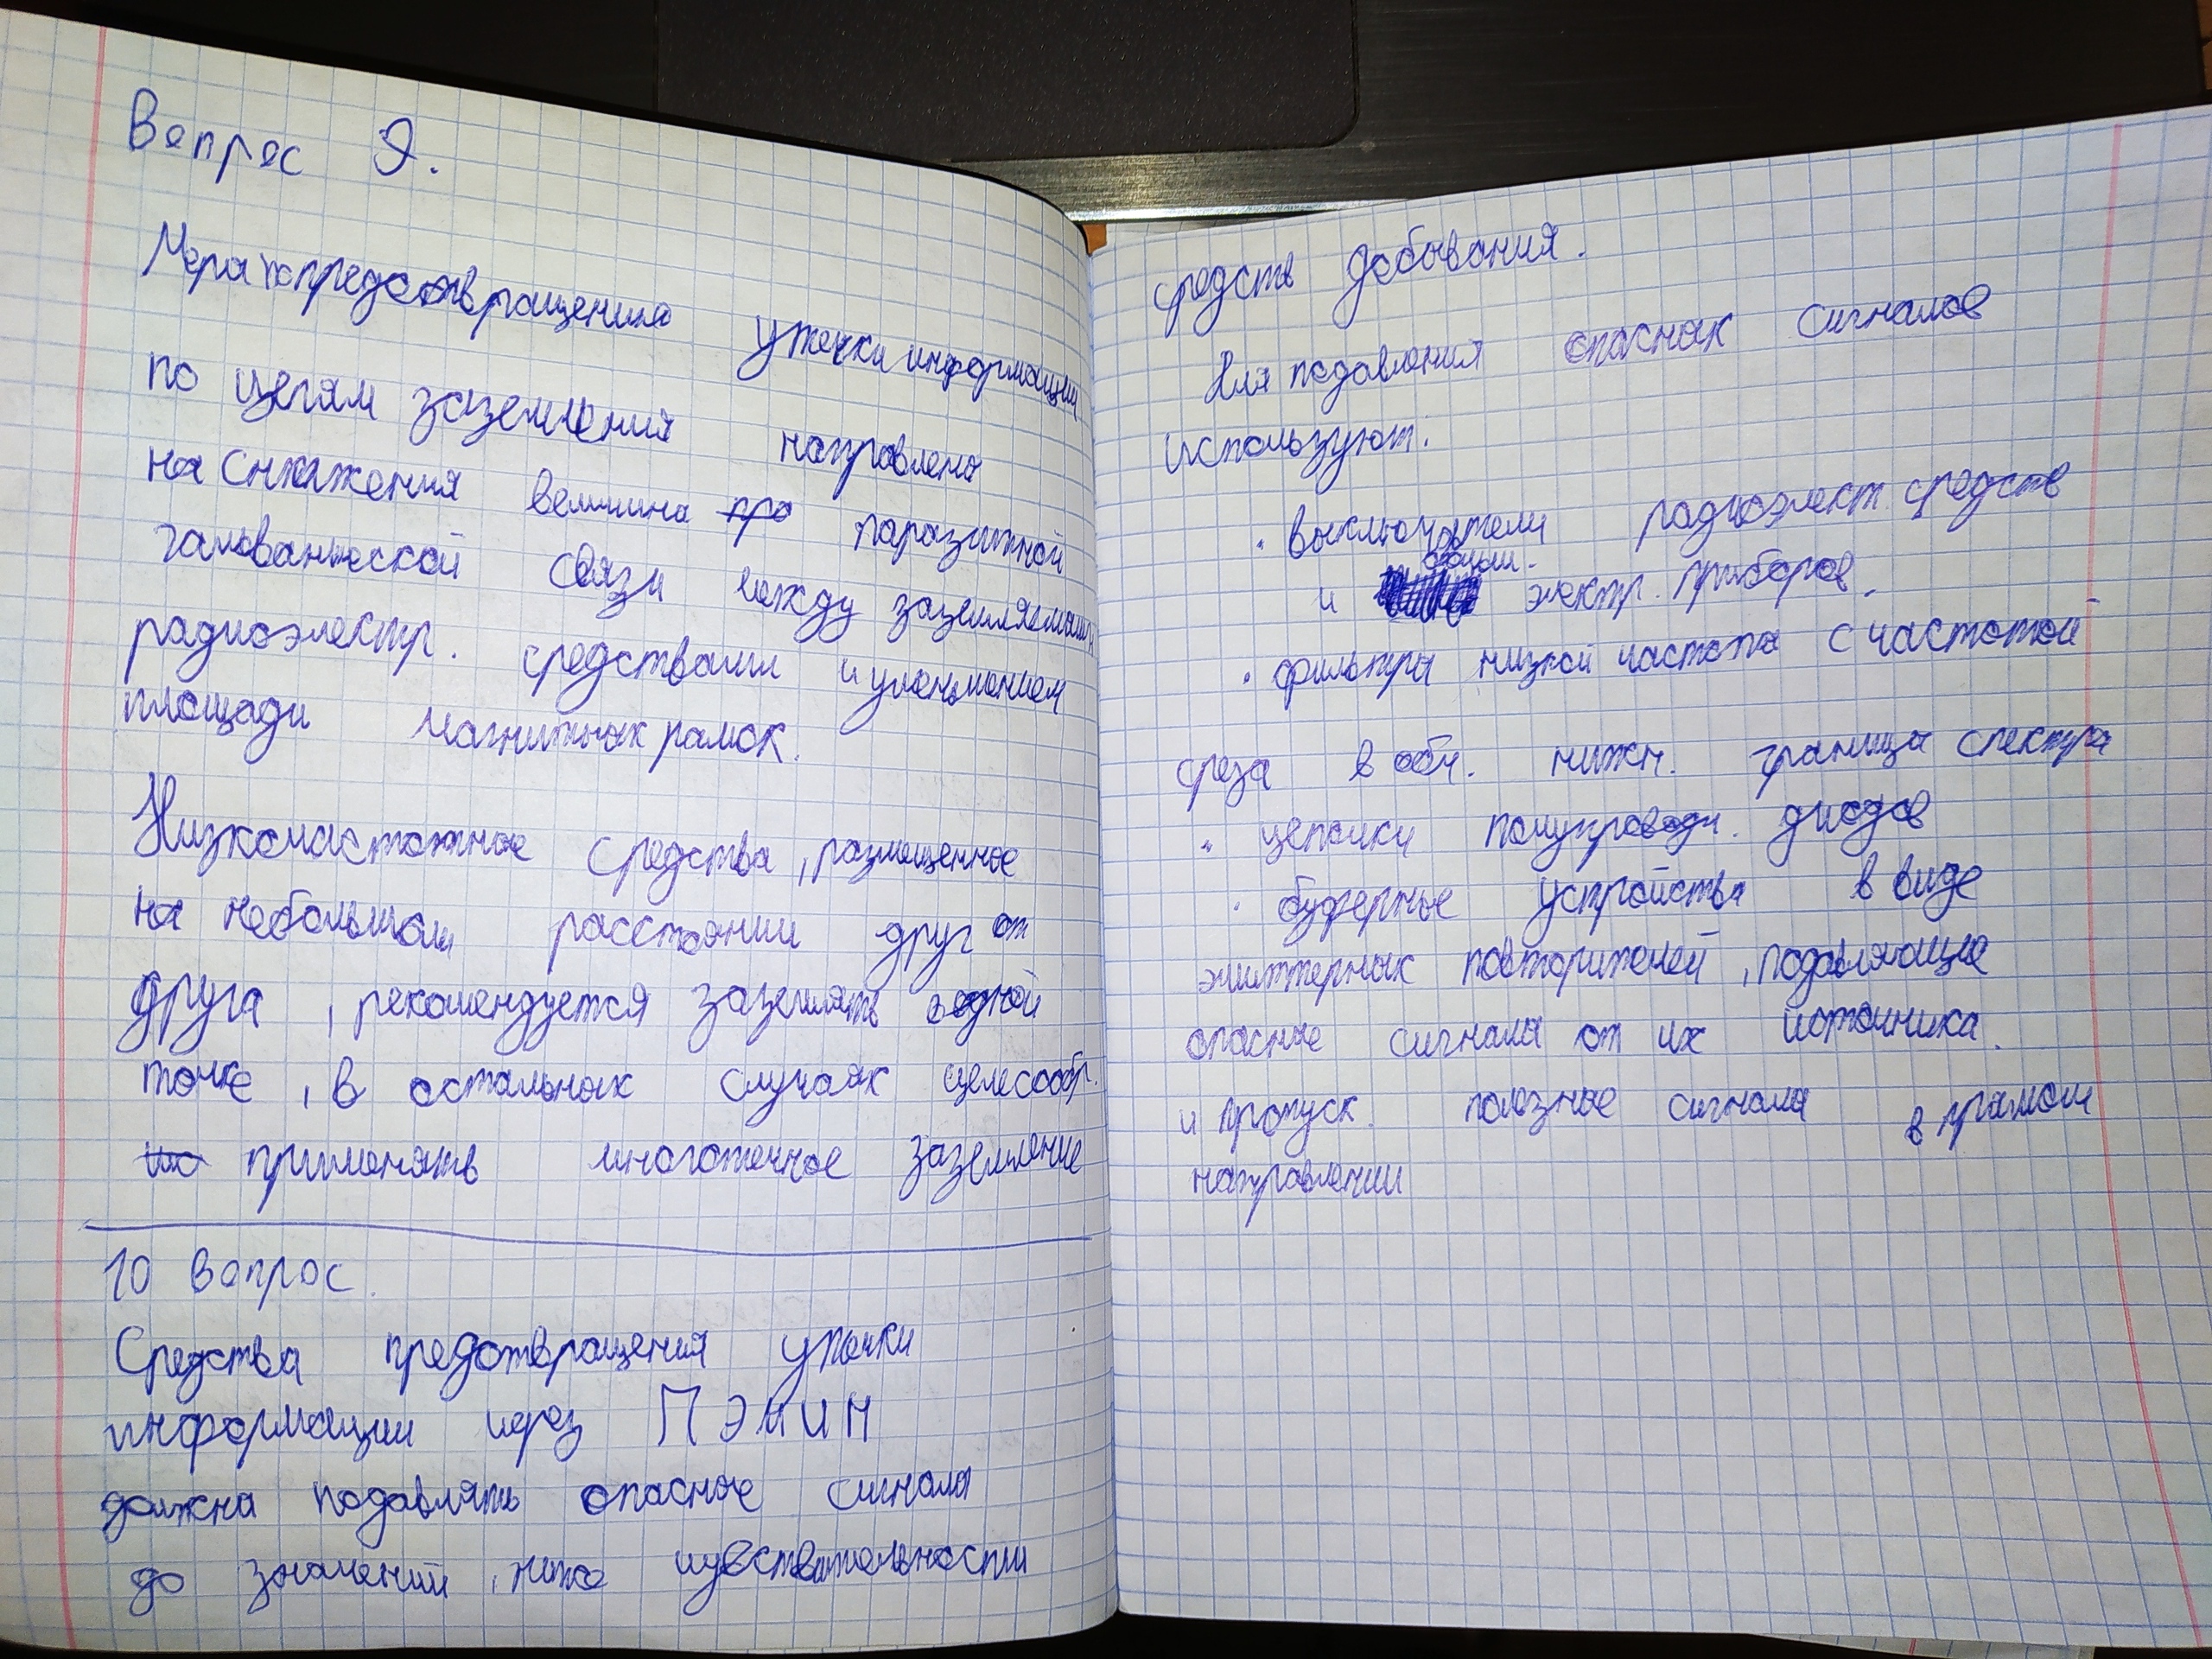 Вопрос 9.
Меры по предотвращению утечки информации
по цепям заземления направлены
на снижения величины паразитной
гальванической связи между заземляемыми
радиоэлектр. средствами и уменьшением
площади магнитных рамок.
Низкочастотные средства, размещенные
на небольшом расстоянии друг от
друга, рекомендуется заземлять в одной
точке, в остальных случаях целесообр.
применять многоточечное заземление
10 вопрос.
Средства предотвращения утечки
информации через ПЭМИН
должны подавлять опасные сигналы
до значений, ниже чувствительности
средств добывания.
Для подавления опасных сигналов
используют:
· выключатели радиоэлект. средств
и электр. приборов.
· фильтры низкой частоты с частотой
среза в обл. нижн. границы спектра
· цепочки полупроводн. диодов
· буферные устройства в виде
эмиттерных повторителей, подавляющие
опасные сигналы от их источника.
и пропуск. полезные сигналы в прямом
направлении